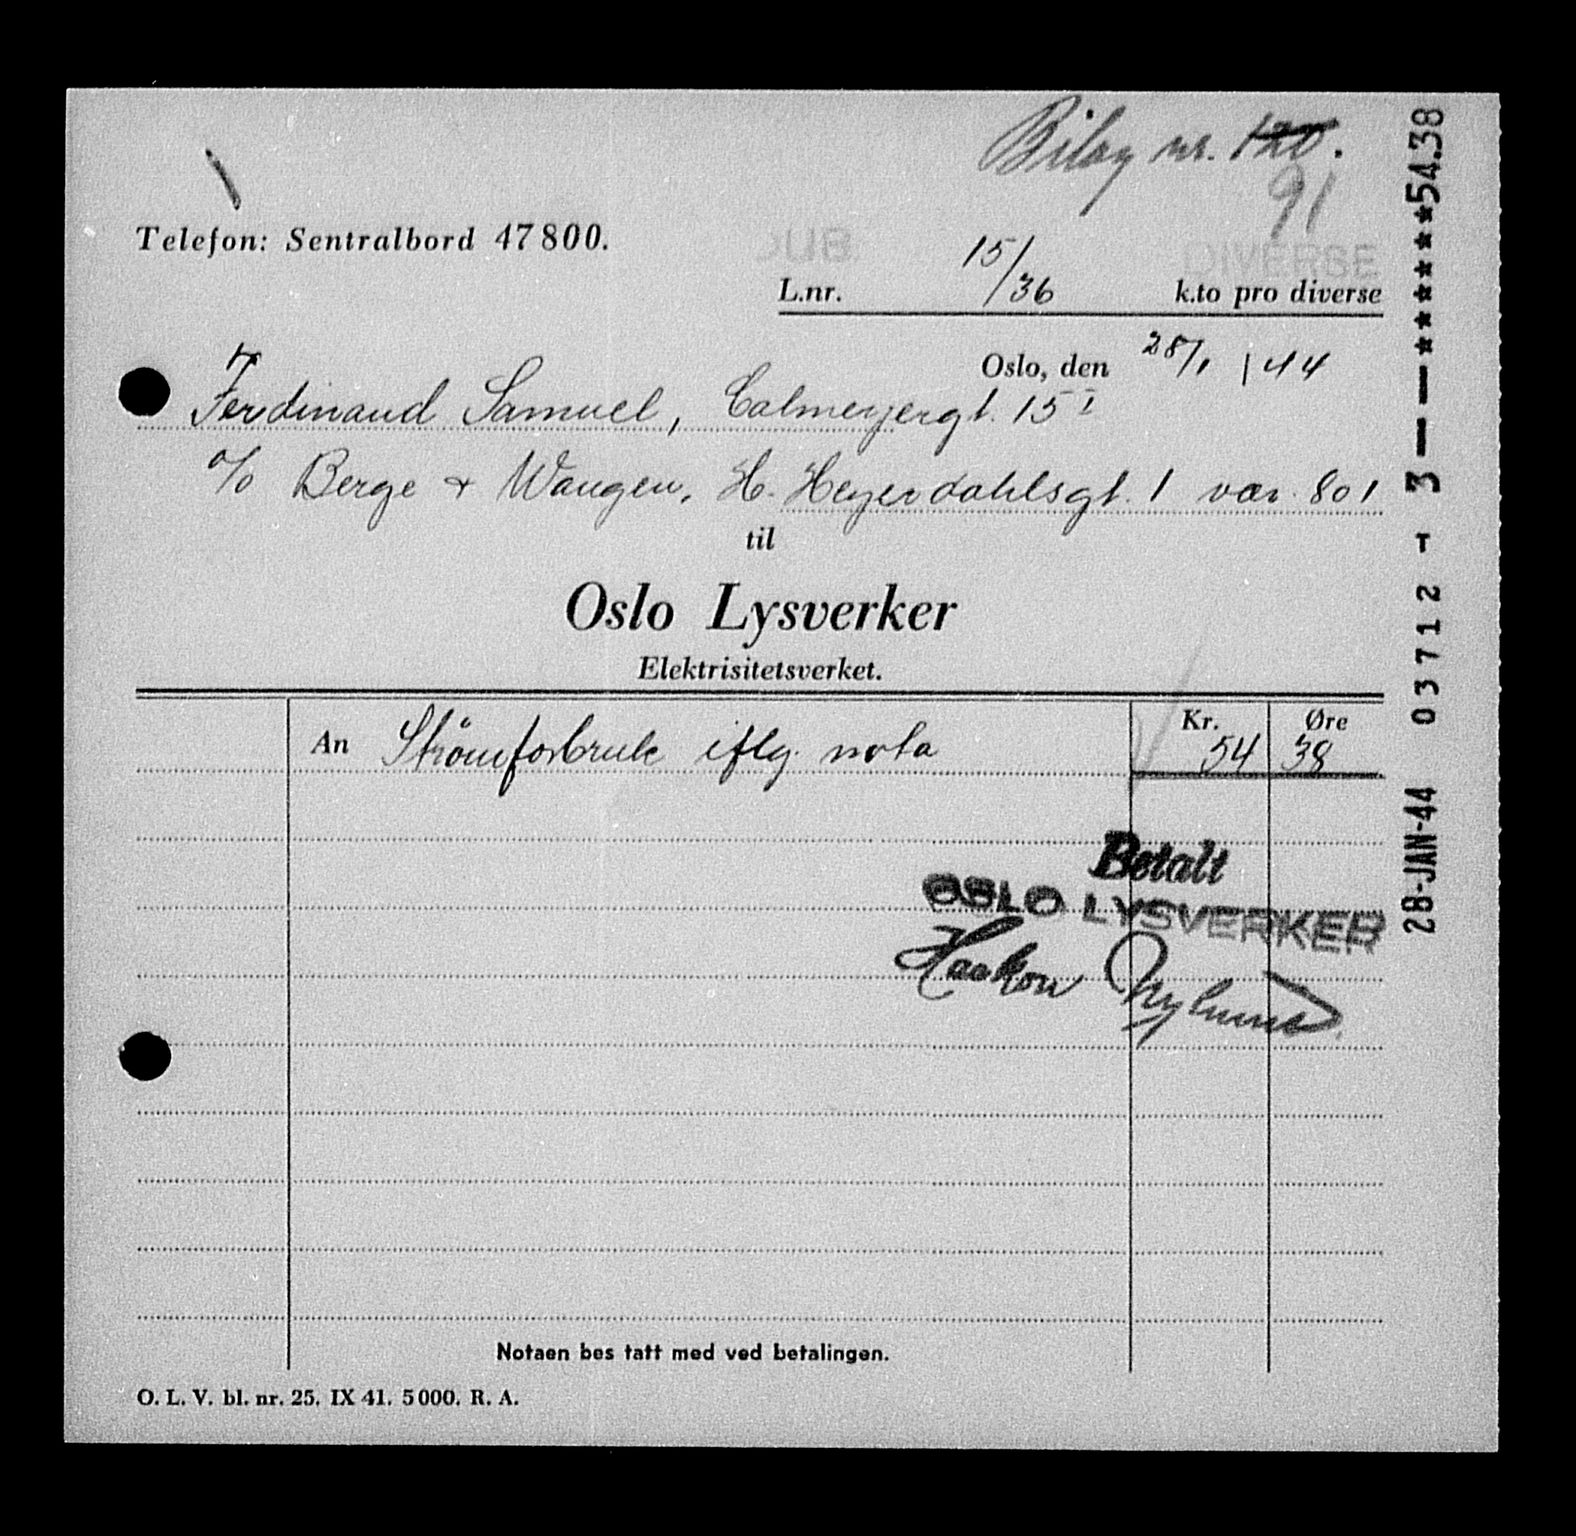 Bilag nr. 120.
91
Telefon: Sentralbord 47800.
DIVERSE
L.nr. 15/36 k.to pro diverse
Oslo, den 28/1 1944
Ferdinand Samuel, Calmeyergt. 15 I
c/o Berge & Waagen, H. Heyerdahlsgt. 1 vær. 801
til
Oslo Lysverker
Elektrisitetsverket.
Kr. Øre
An Strömforbruk iflg. nota 54 38
Betalt
OSLO LYSVERKER
Haakon Nylund
Notaen bes tatt med ved betalingen.
O. L. V. bl. nr. 25. IX 41. 5000. R. A.
28-JAN-44 03712 T 3 — — ******54.38